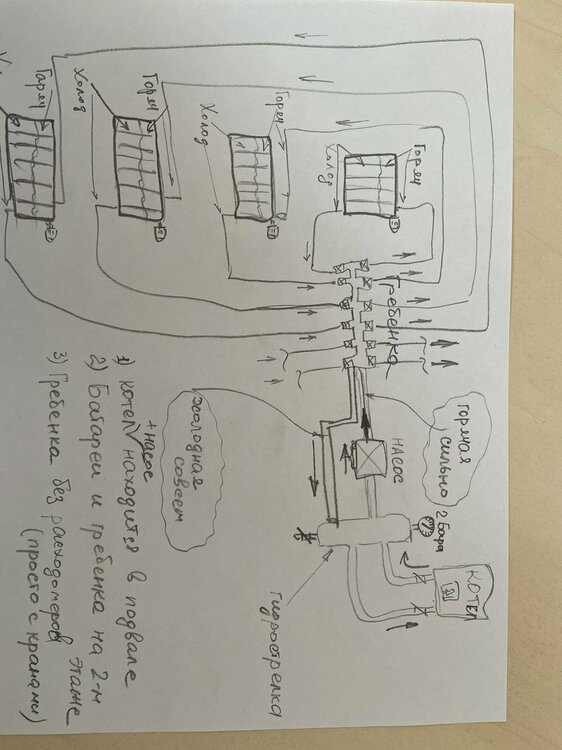 Горяч
Холод
Горяч
Холод
Горяч
Холод
Горяч
Холод
Гребенка
Горячая
сильно
Холодная
совсем
НАСОС
2 бара
КОТЕЛ
Гидрострелка
+ насос
1) котел находится в подвале
2) Батареи и гребенка на 2-м
этаже
3) Гребенка без расходомеров
(просто с кранами)